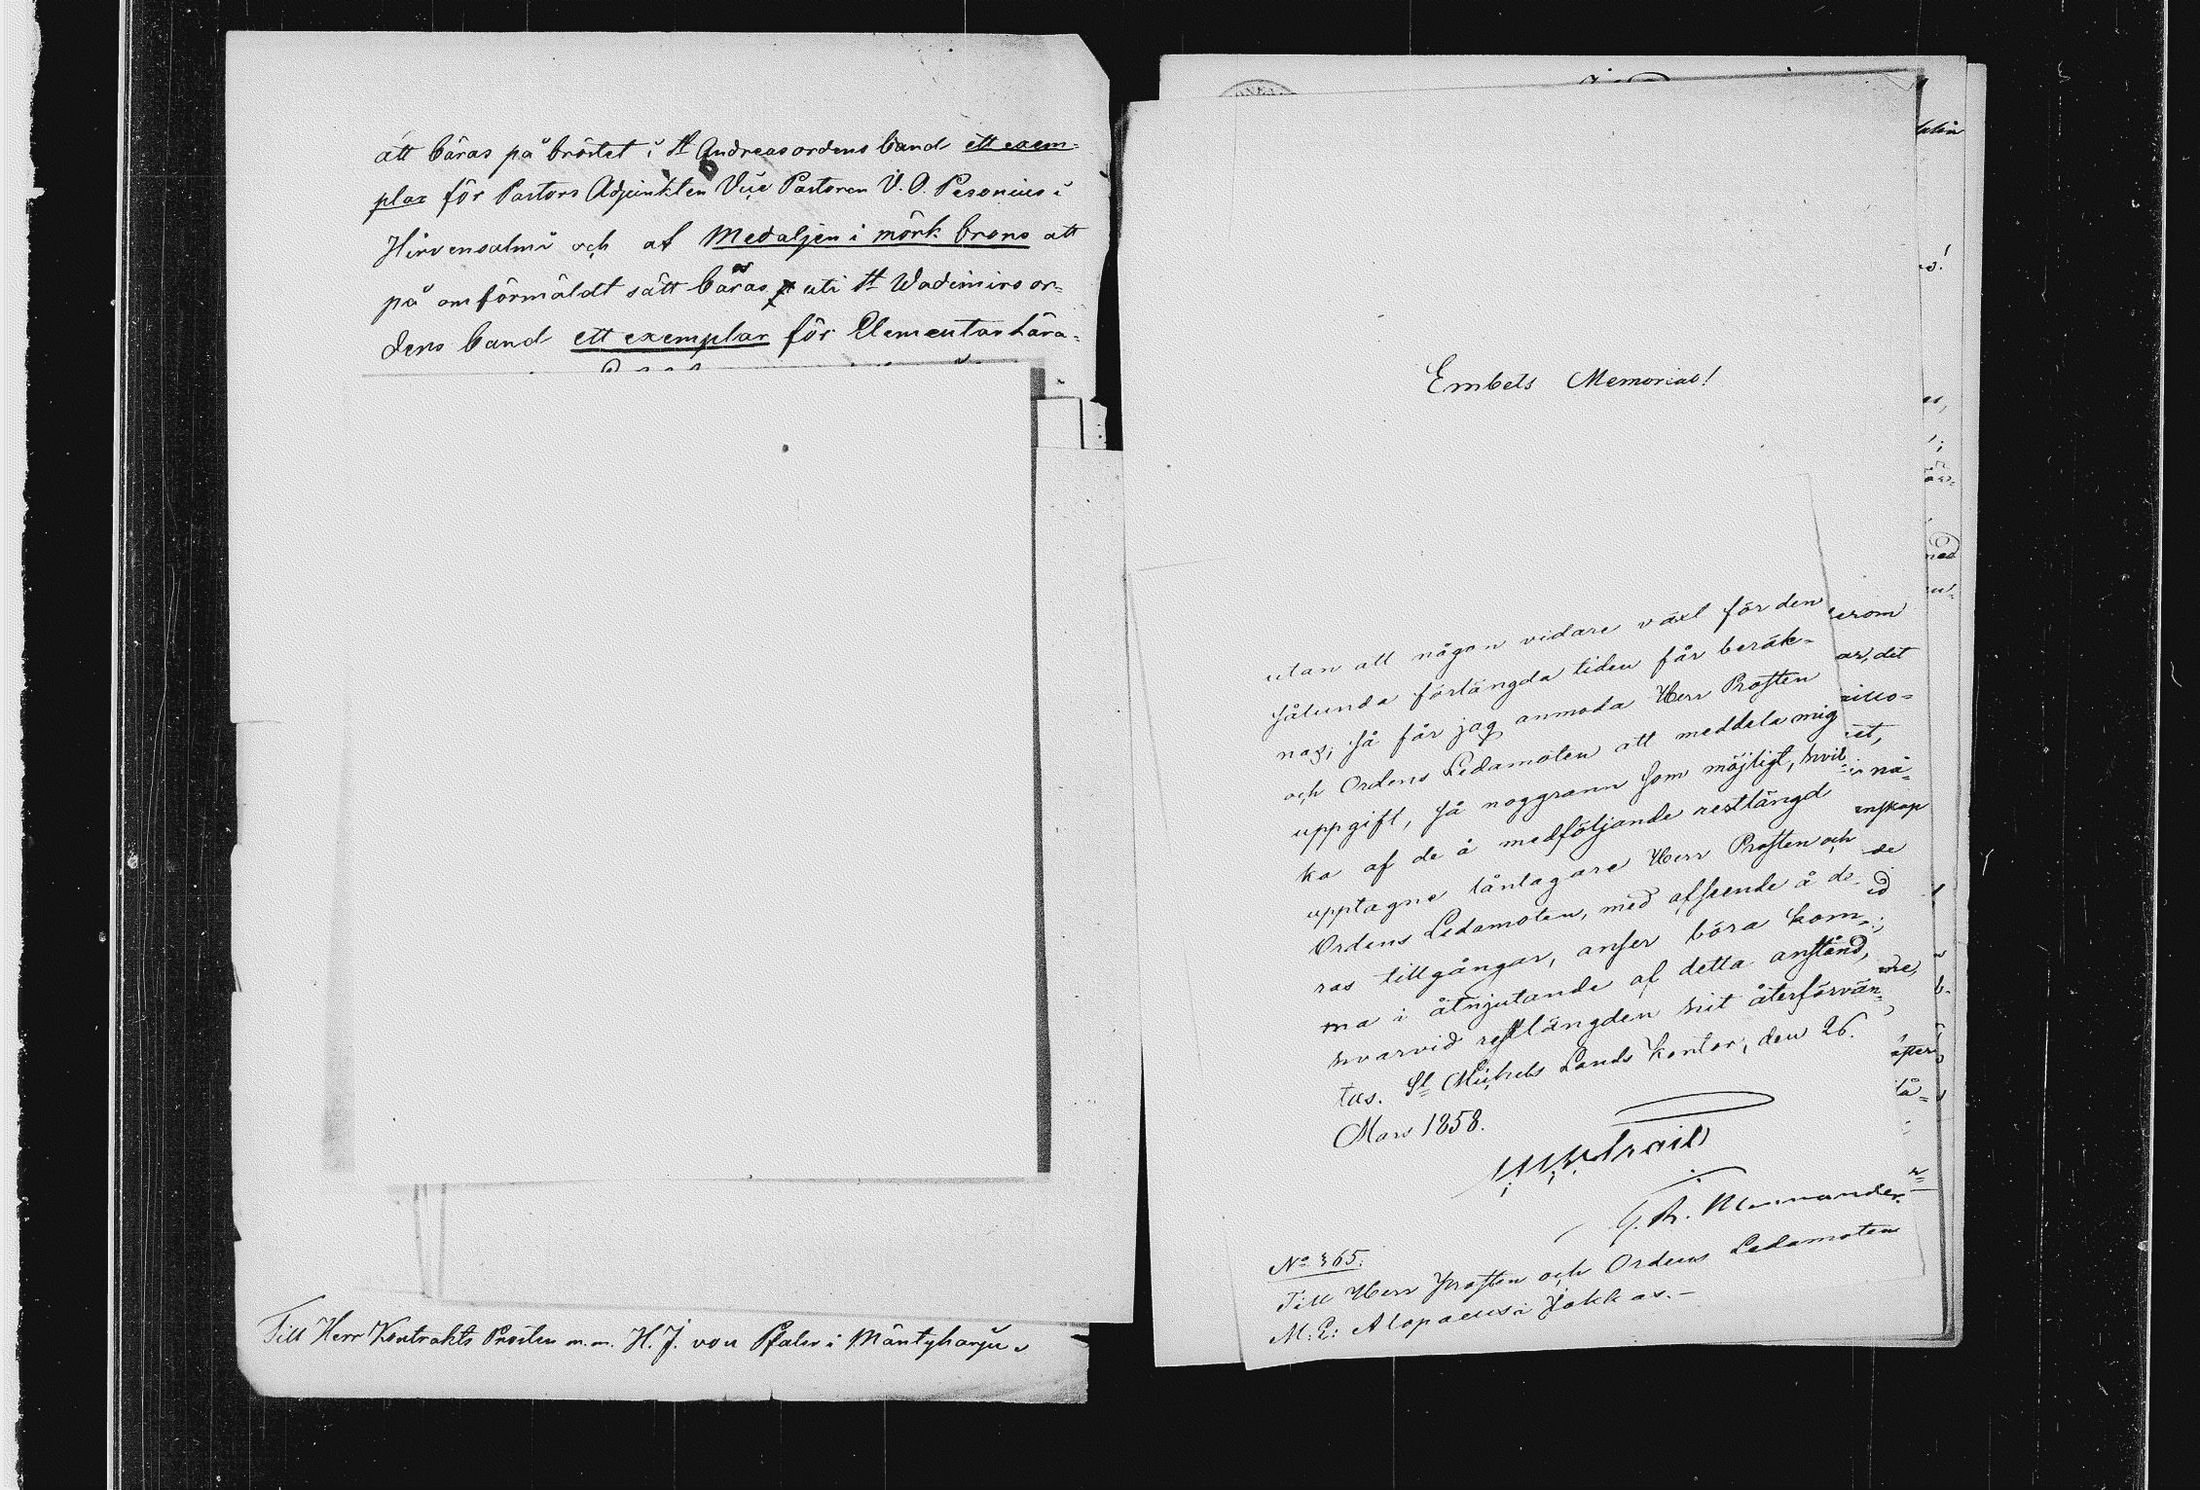 att bäras på bröstet i St Andreasordens band ett exem-
plar för Pastors Adjunkten Vice Pastoren V. O. Pesonius i
Hirvensalmi och af Medaljen i mörk brons att
på omförmäldt sätt bäras uti St Wadimirs or-
dens band ett exemplar för Elementarlära-
Till Herr Kontrakts Prosten m.m. H. J. von Pfaler i Mäntyharju
Embets Memorial!
utan att någon vidare växt för den
sålunda förlängda tiden får beräk-
nas; så får jag anmoda Herr Prosten
och Ordens Ledamoten att meddela mig
uppgift, så noggrann som möjligt, hvil
ka af de å medföljande restlängd
upptagne låntagare Herr Prosten och
Ordens Ledamoten, med afseende å de-
ras tillgångar, anser böra kom-
ma i åtnjutande af detta anstånd,
hvarvid restlängden hit återförvän-
tas. St Michels Lands Kontor, den 26.
Mars 1858.
No 365.
Till Herr Prosten och Ordens Ledamoten
M: E: Alopaeus i Jokkas.-